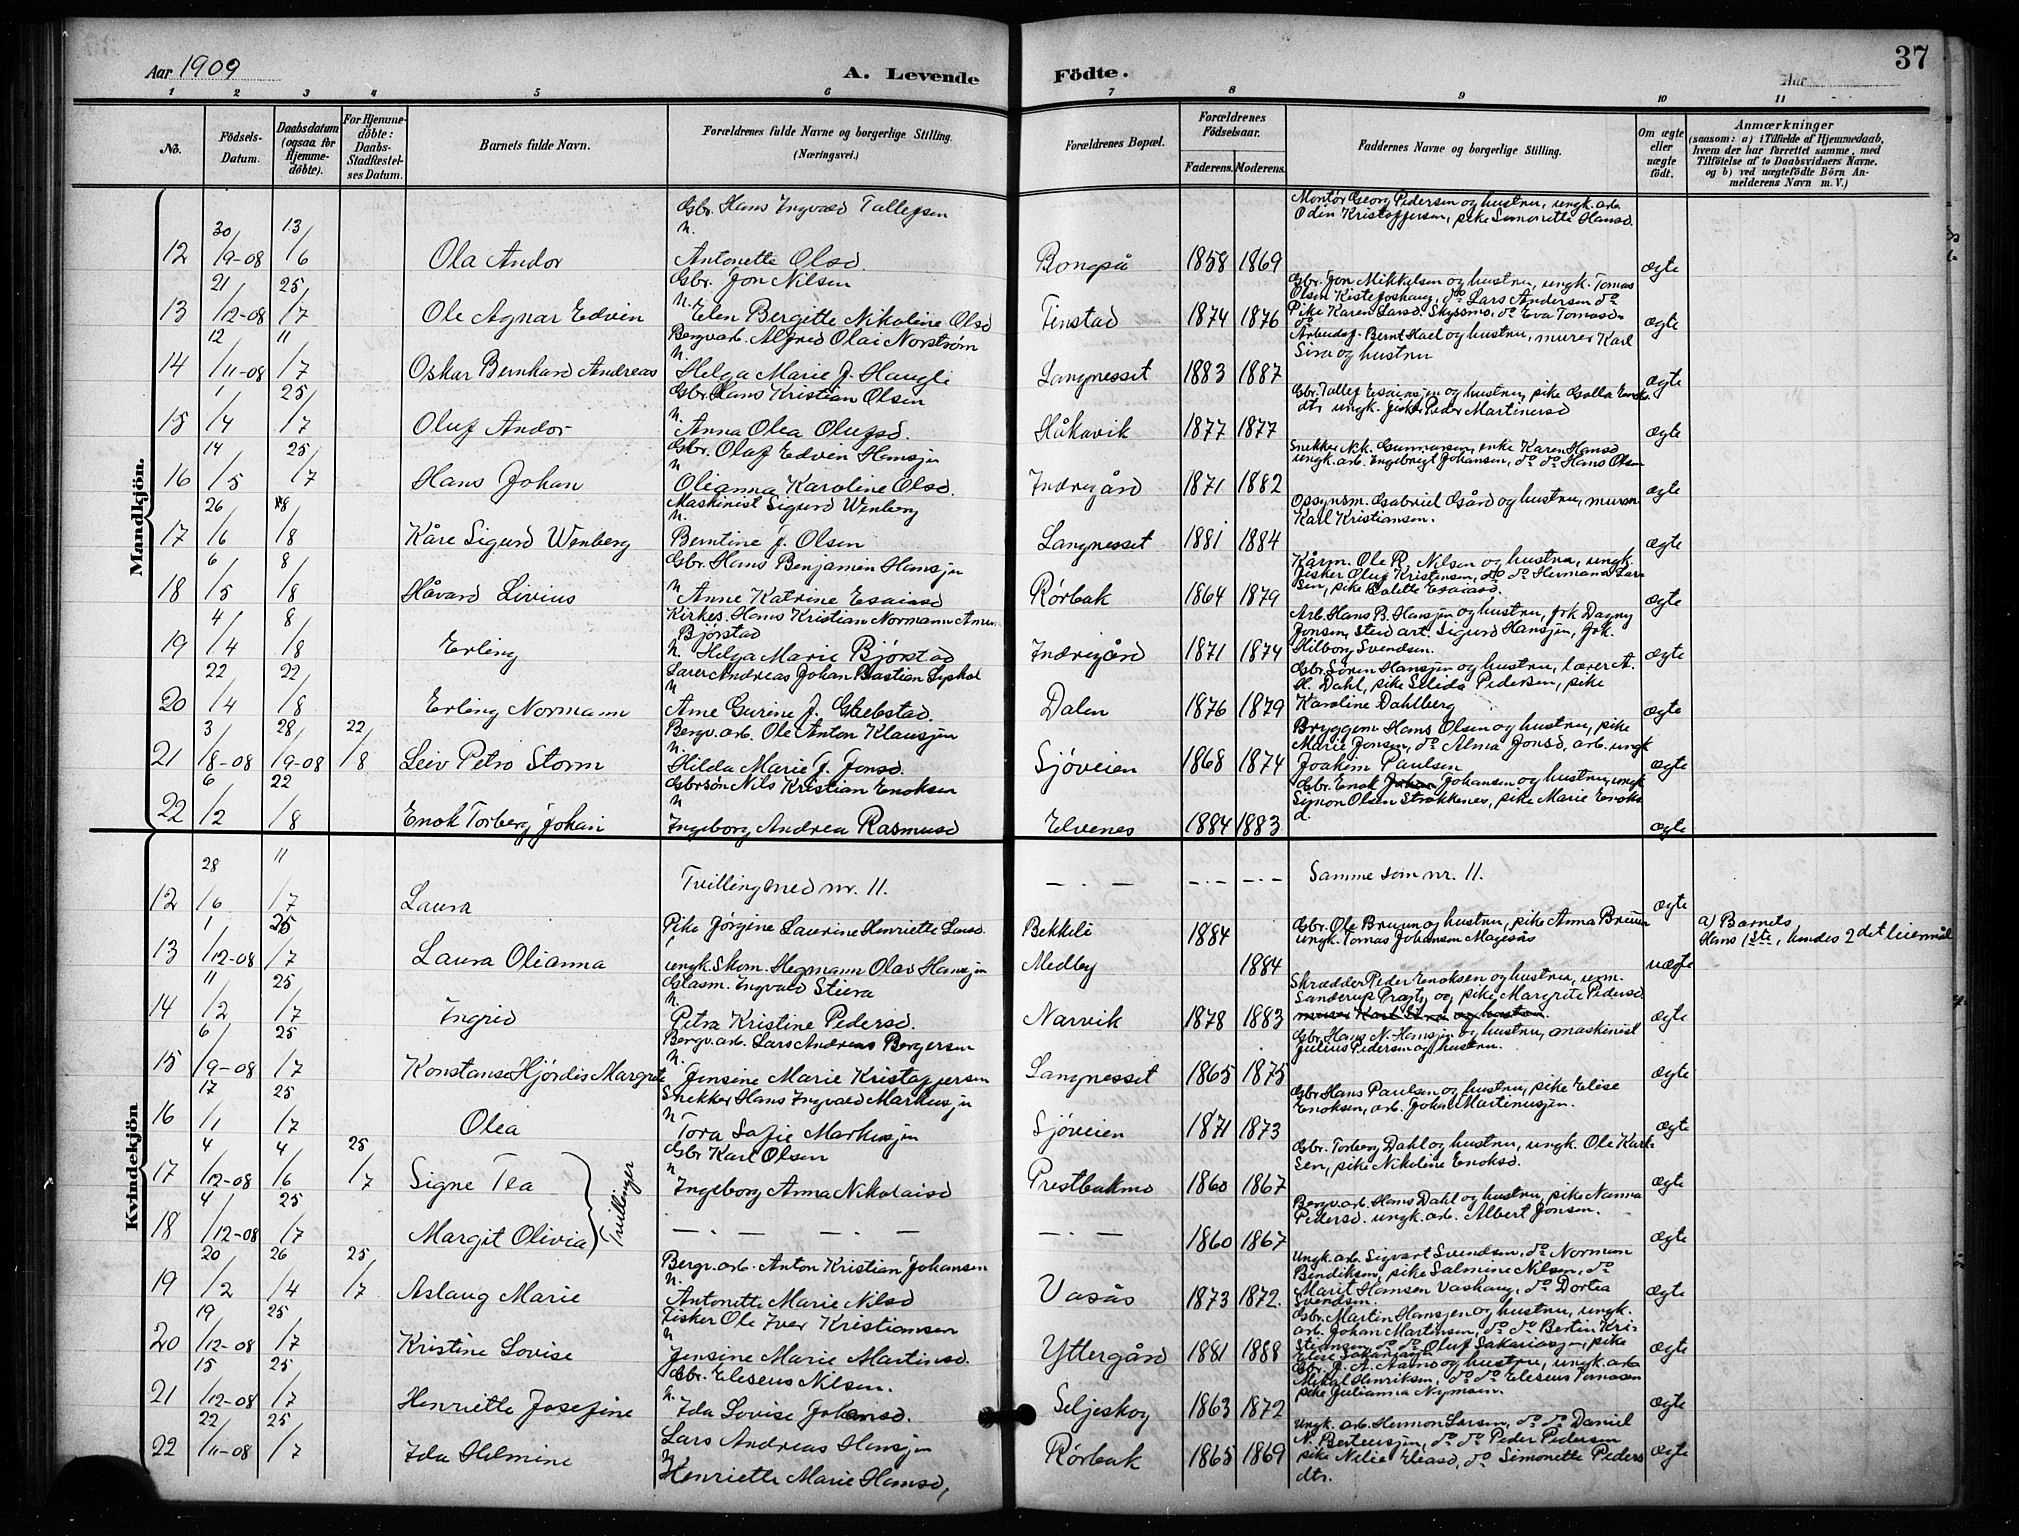 Aar 1909
A. Levende Födte.
37
Aar
1 2 3 4 5 6 7 8 9 10 11
No.
Födsels-Datum.
Daabsdatum (ogsaa for Hjemme-döbte).
For Hjemme-döbte: Daabs-Stadfæstel-ses Datum.
Barnets fulde Navn.
Forældrenes fulde Navne og borgerlige Stilling.
(Næringsvei.)
Forældrenes Bopæl.
Forældrenes Födselsaar.
Faderens. Moderens.
Faddernes Navne og borgerlige Stilling.
Om ægte eller uægte födt.
Anmærkninger
(saasom: a) i Tilfælde af Hjemmedaab,
hvem der har forrettet samme, med
Tilföielse af to Daabsvidners Navne.
og b) ved uægtefödte Börn An-
melderens Navn m. V.)
Mandkjön.
Gbr. Hans Ingvald Tallefsen
Montør Georg Pedersen og hustru, ungk. arb.
Odin Kristoffersen, pike Simonette Hansd.
12 30/9-08 13/6 Ola Andor h. Antonette Olsd. Bongså 1858 1869 ægte
Gbr. Jon Nilsen
Gbr. Jon Mikkelsen og hustru, ungk. Tomas
Olsen Kistefoshaug, do Lars Andersen do
13 21/12-08 25/7 Ole Agnar Edvin h. Elen Bergette Nikoline Olsd Tenstad 1874 1876 Pike Karen Larsd. Skyssmo, do Eva Tomasd. ægte
Bergvarb. Alfred Olai Norstrøm
Arbeidsf. Bernt Hael og hustru, murer Karl
Sira og hustru
14 12/11-08 11/7 Oskar Bernhard Andreas h. Helga Marie J. Haugli Langnesset 1883 1887 ægte
Gbr. Hans Kristian Olsen
Gbr. Tallef Esaiassen og hustru, pike Golla Enoks-
dtr ungk. fisker Peder Martinussd
15 1/4 25/7 Oluf Andor h. Anna Olea Olufsd. Håkavik 1877 1877 ægte
Gbr. Oluf Edvin Hansjen
Snekker Nik. Gunnarsen, enke Karen Hansd
ungk. arb. Ingebrigt Johansen, do do Hans Olsen
16 14/5 25/7 Hans Johan h Olianna Karoline Olsd. Indregård 1871 1882 ægte
Maskinist Sigurd Wenberg
Opsynsm. Gabriel Gård og hustru, murer
Karl Kristiansen.
17 26/6 8/8 Kåre Sigurd Wenberg h. Berntine J. Olsen Langnesset 1881 1884 ægte
Gbr. Hans Benjamin Hansjen
Kårm. Ole R. Nilsen og hustru, ungk.
fisker Oluf Kristensen, do do Hermann Lar-
sen, pike Dalette Esaiasd.
18 6/5 8/8 Håvard Livius h Anne Katrine Esaissd Rörbak 1864 1879 ægte
Kirkes. Hans Kristian Normann
Bjørstad
Arb. Hans B. Hansjen og hustru, frk Dagny
Jonsen, Stud art. Sigurd Hansjen, frk.
Hilborg Svendsen.
19 4/4 8/8 Erling h. Helga Marie Bjørstad Indregård 1871 1874 ægte
Lærer Andreas Johan Bastian
Gbr. Sören Hansjen og hustru, lærer A.
H. Dahl, pike Selida Pedersen, pike
Karoline Dahlberg
20 22/4 22/8 Erling Normann h Ane Gurine J. Glæbstad. Dalen 1876 1879 ægte
Bergv. arb. Ole Anton Klausjen
Bryggem Hans Olsen og hustru, pike
Marie Jonsen, do Alma Jonsd, arb. ungk
Joakim Paulsen
21 3/8-08 28/9-08 22/8 Leiv Petro Storm h. Hilda Marie J. Jonsd. Sjöveien 1868 1874 ægte
Gbrsön Nils Kristian Enoksen
Gbr. Enok Johansen og hustru, ungk
Simon Olsen Strokkenes, pike Marie Enoks
d.
22 6/2 22/8 Enok Torberg Johan h Ingeborg Andrea Rasmusd Elvenes 1884 1883 ægte
Kvindekjön
12 28/6 11/7 Laura Tvilling med nr. 11. — . — — . — — . — Samme som nr. 11. ægte
Pike Jörgine Laurine Henriette Larsd. Bekkeli 1884
Gbr. Ole Bruun og hustru, pike Anna Bruun
ungk. Tomas Johansen Magesås
a) Barnets
Hans 1ste, hendes 2det leiermål
13 1/12-08 25/7 Laura Olianna ungk. Skom. Hermann Olav Hansjen Medby 1884 uægte
Glasm. Ingvald Stiera
Skrædder Peder Enoksen og hustru, urm.
Sanderup Præsty og pike Margrete Pedersd.
murer Karl Sira og hustru.
14 11/2 25/7 Ingrid h. Petra Kristine Pedersd. Narvik 1878 1883 ægte
Bergv. arb. Lars Andreas Bergersen
Gbr. Hans N. Hansjen og hustru, maskinist
Julius Pedersen og hustru.
15 6/9-08 25/7 Konstanse Hjördis Margrete h. Jensine Marie Kristoffersen Langnesset 1865 1875 ægte
Snekker Hans Ingvald Markusjen
Gbr. Hans Paulsen og hustru, pike Elise
Enoksen, arb. Johan Martinusjen.
16 17/1 25/7 Olea h Tora Sofie Markusjen Sjöveien 1871 1873 ægte
Gbr Karl Olsen
Gbr. Torberg Dahl og hustru, ungk. Ole Karl-
sen, pike Nikoline Enoksd.
17 4/12-08 4/6 25/7 Signe Tea Tvillinger h Ingeborg Anna Nikolaisd Prestbakmo 1860 1867 ægte
Bergv. arb. Hans Dahl og hustru, pike Nanna
Pedersd. ungk. arb. Albert Jonsen.
18 4/12-08 25/7 Margit Olivia — . — — — — . — 1860 1867 ægte
Bergv. arb. Anton Kristian Johansen
Ungk. arb. Sigvart Svendsen, do Norman
Bendiksen, pike Salmine Nilsen, do
Marit Hansen Vashaug, do Dortea
Svendsen.
19 20/2 26/4 25/7 Aslaug Marie h. Antonette Marie Nilsd Vasås 1873 1872. ægte
Fisker Ole Iver Kristiansen
Gbr. Martin Hansjen og hustru, ungk.
arb. Johan Martinsen, do do Bertin Kri-
stiansen, do do Oluf Sakariasjen, pike
Elise Sakariasjen
20 19/12-08 25/7 Kristine Lovise h Jensine Marie Martinsd. Yttergård 1881 1888 ægte
Gbr. Eleseus Nilsen.
Gbr. J. A. Aamo og hustru, ungk. arb.
Mikal Henriksen, do do Eleseus Tomassen
pike Julianna Nymoen.
21 15/12-08 25/7 Henriette Josefine h. Ida Lovise Johansd. Seljeskog 1863 1872 ægte
Lars Andreas Hansjen
Ungk. arb. Hermon Larsen, do do Daniel
N. Berteusjen, do do Peder Pedersen
pike Nelie Eliasd, do Simonette Peders
dtr.
22 22/11-08 25/7 Ida Helmine h Henriette Marie Hansd, Rörbak 1865 1869 ægte